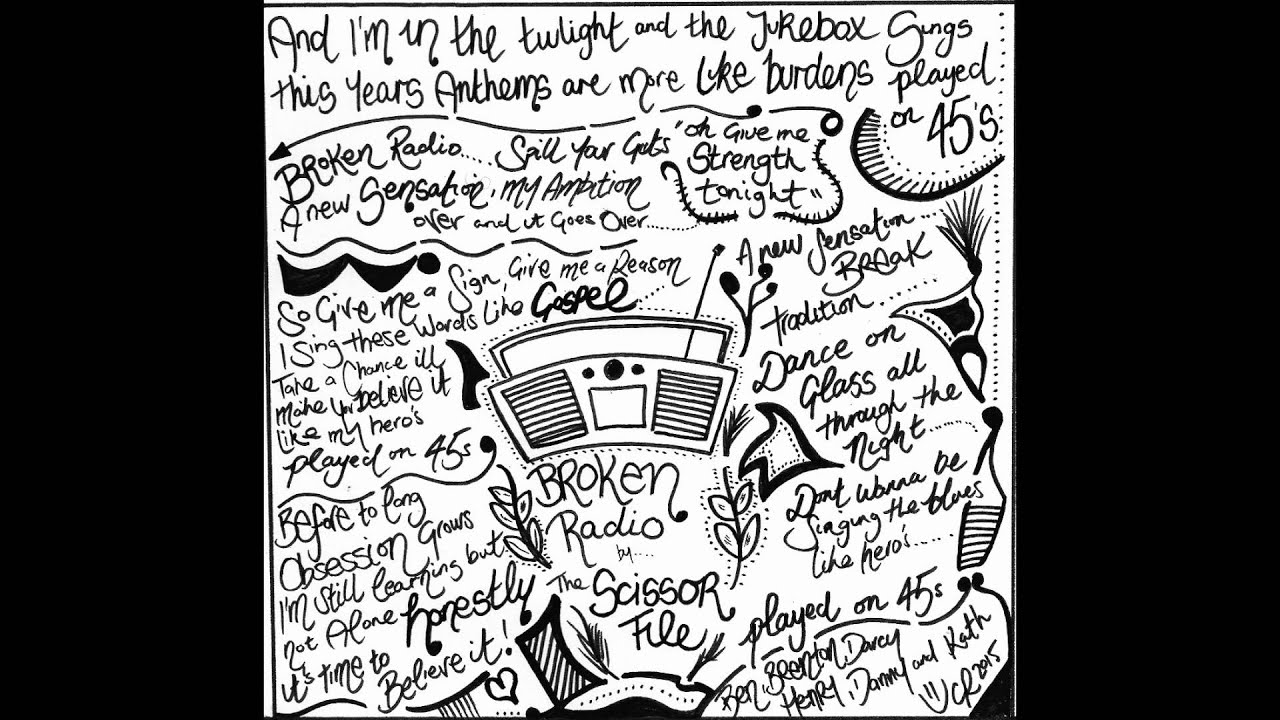 And I'm in the twilight and the Jukebox Sings
this Years Anthems are more like burdens played
on 45's
Broken Radio.... Spill Your Guts "oh Give me
Strength
tonight"
A new Sensation, my Ambition
over and it Goes Over......
So Give me a Sign, Give me a Reason
I Sing these words Like Gospel......
Take a Chance ill
make you believe it
like my hero's
played on 45s
Before to long
Obsession Grows
I'm still learning but
not Alone honestly
it's time to
Believe it!
A new Sensation...
BREAK
tradition......
Dance on
Glass all
through the
Night......
Dont wanna be
Singing the blues
like hero's.....
played on 45s
BROKEN
Radio
by....
The Scissor
File
Ben, Brenton, Darcy
Henry, Danny and Kath
CR 2015